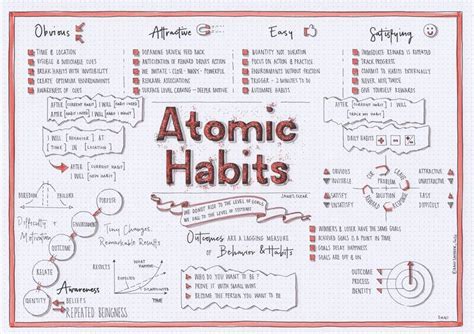 Obvious
TIME & LOCATION
VISIBLE & NOTICEABLE CUES
BREAK HABITS WITH INVISIBILITY
CREATE OPTIMUM ENVIRONMENTS
AWARENESS OF CUES
Attractive
DOPAMINE-DRIVEN FEED BACK
ANTICIPATION OF REWARD DRIVES ACTION
WE IMITATE: CLOSE - MANY - POWERFUL
REFRAME ASSOCIATIONS
SURFACE LEVEL CRAVING - DEEPER MOTIVE
Easy
QUANTITY NOT DURATION
FOCUS ON PRACTICE & ACTION
ENVIRONMENTS WITHOUT FRICTION
TRIGGER - 2 MINUTES TO
AUTOMATE HABITS
Satisfying
IMMEDIATE REWARD IS REPEATED
TRACK PROGRESS
COMMIT TO HABITS EXTERNALLY
NEVER MISS TWICE
GIVE YOURSELF REWARDS
AFTER [CURRENT HABIT] I WILL [HABIT I NEED]
AFTER [HABIT I NEED] I WILL [HABIT I WANT]
I WILL [BEHAVIOR] AT
[TIME] IN [LOCATION]
AFTER [CURRENT HABIT]
I WILL [NEW HABIT]
Atomic
Habits
JAMES CLEAR
WE DO NOT RISE TO THE LEVEL OF GOALS
WE FALL TO THE LEVEL OF SYSTEMS
AFTER [CURRENT HABIT]
I WILL [NEW HABIT]
DAILY HABITS
OBVIOUS
INVISIBLE
SATISFYING
UNSATISFYING
CUE
CRAVE
RESPONSE
REWARD
PROBLEM
SOLUTION
ATTRACTIVE
UNATTRACTIVE
EASY
DIFFICULT
BOREDOM
FAILURE
Difficulty &
Motivation
PURPOSE
ENVIRONMENT
OUTCOME
RELATE
IDENTITY
Tiny Changes,
Remarkable Results
Awareness
BELIEFS
REPEATED BEINGNESS
Outcomes ARE A LAGGING MEASURE
OF Behavior & Habits
WHO DO YOU WANT TO BE?
PROVE IT WITH SMALL WINS
BECOME THE PERSON YOU WANT TO BE
WINNERS & LOSERS HAVE THE SAME GOALS
ACHIEVED GOALS IS A POINT IN TIME
GOALS DELAY HAPPINESS
GOALS ARE ALL OR NOTHING
OUTCOME
PROCESS
IDENTITY